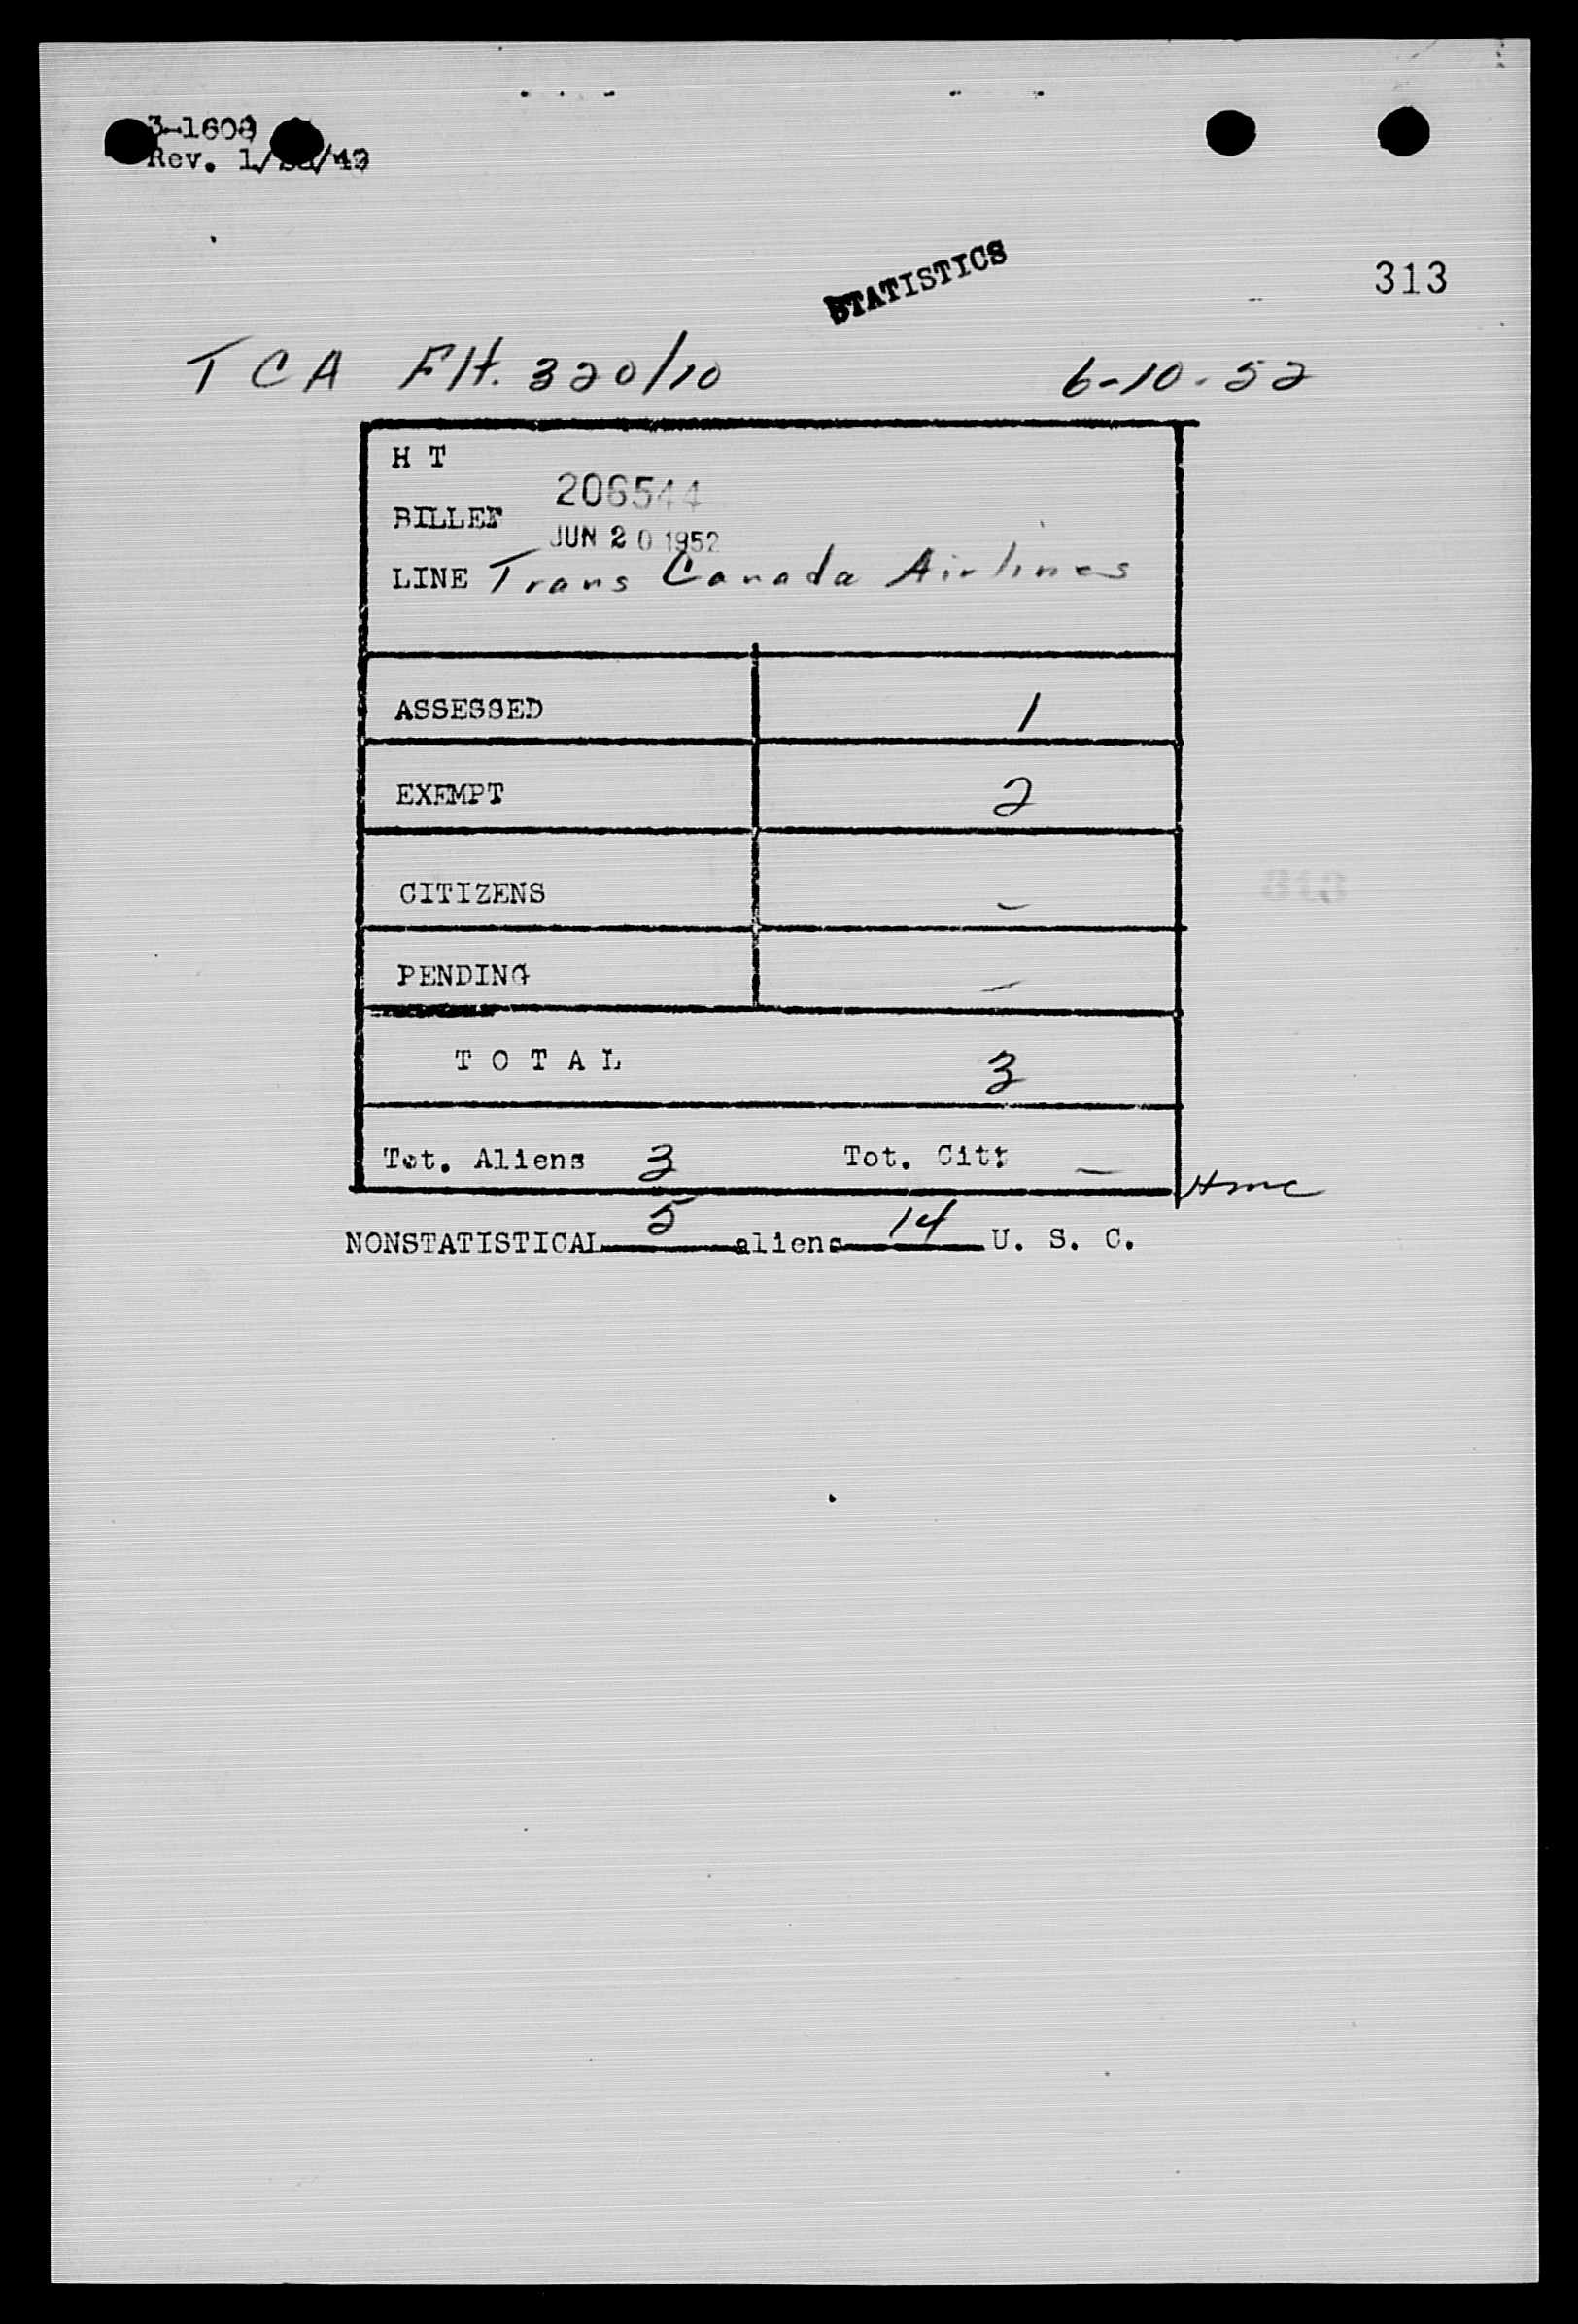 3-1608
Rev. 1/ /49
STATISTICS
313
TCA Flt. 320/10 6-10-52
H T
BILLED 206544
JUN 20 1952
LINE Trans Canada Airlines
ASSESSED 1
EXEMPT 2
CITIZENS -
PENDING -
T O T A L 3
Tot. Aliens 3 Tot. Cit: -
Hmc
NONSTATISTICAL 5 aliens 14 U. S. C.